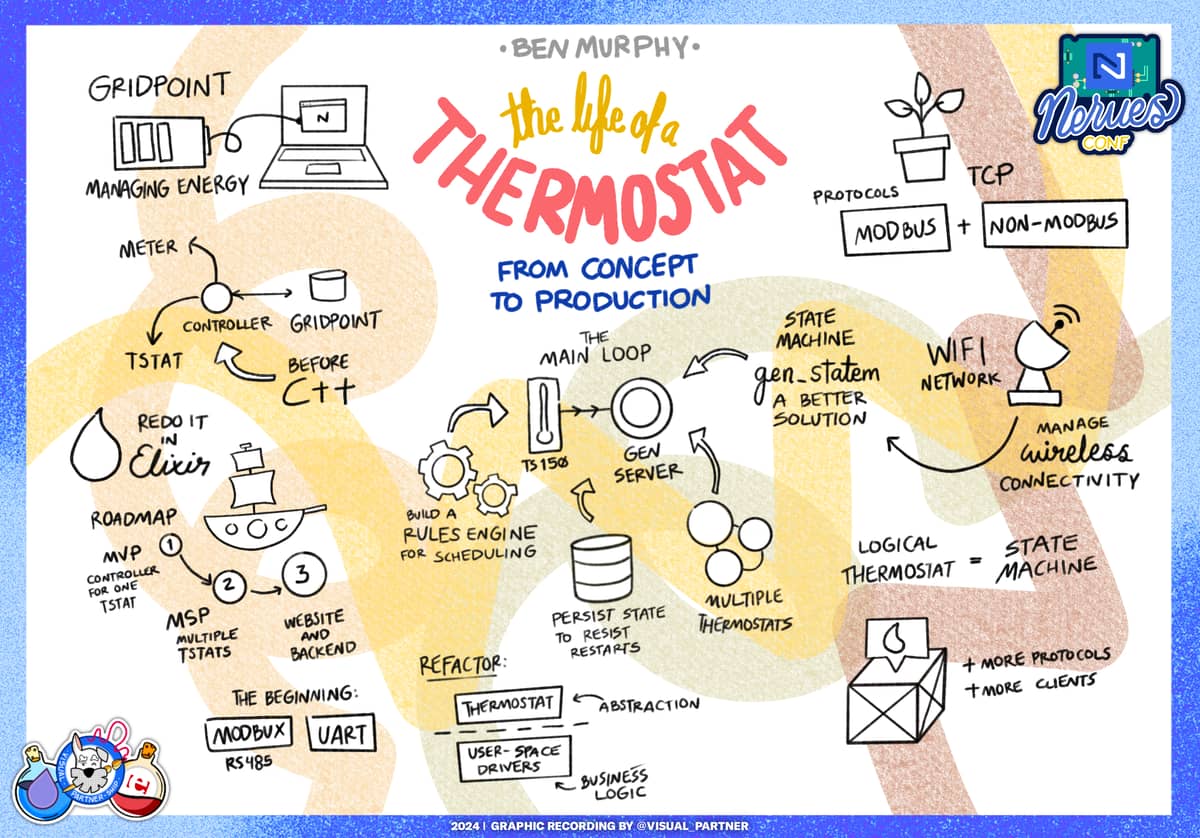 • BEN MURPHY •
the life of a
THERMOSTAT
FROM CONCEPT
TO PRODUCTION
GRIDPOINT
N
MANAGING ENERGY
METER
CONTROLLER
GRIDPOINT
TSTAT
BEFORE
C++
REDO IT
IN
Elixir
ROADMAP
1
MVP
CONTROLLER
FOR ONE
TSTAT
2
MSP
MULTIPLE
TSTATS
3
WEBSITE
AND
BACKEND
THE BEGINNING:
MODBUX
UART
RS485
THE
MAIN LOOP
TS150
GEN
SERVER
BUILD A
RULES ENGINE
FOR SCHEDULING
PERSIST STATE
TO RESIST
RESTARTS
MULTIPLE
THERMOSTATS
STATE
MACHINE
gen_statem
A BETTER
SOLUTION
REFACTOR:
THERMOSTAT
ABSTRACTION
USER-SPACE
DRIVERS
BUSINESS
LOGIC
N
Nerves
CONF
TCP
PROTOCOLS
MODBUS + NON-MODBUS
WIFI
NETWORK
MANAGE
wireless
CONNECTIVITY
LOGICAL
THERMOSTAT = STATE
MACHINE
+ MORE PROTOCOLS
+ MORE CLIENTS
VISUAL
PARTNER-SHIP
2024 | GRAPHIC RECORDING BY @VISUAL_PARTNER